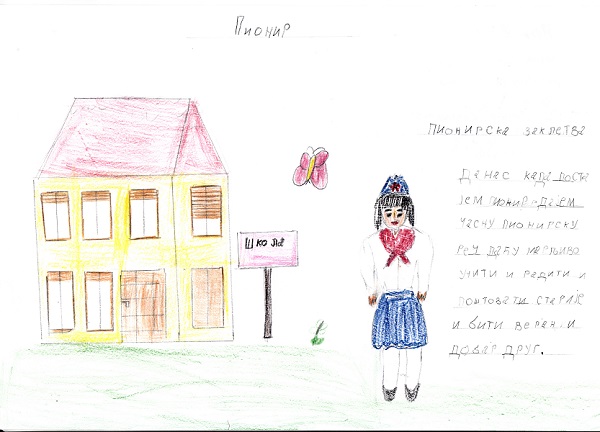 Пионир
Пионирска заклетва
Школа
Данас када поста
јем пионир дајем
часну пионирску
реч да ћу марљиво
учити и радити и
поштовати старије
и бити веран и
добар друг.